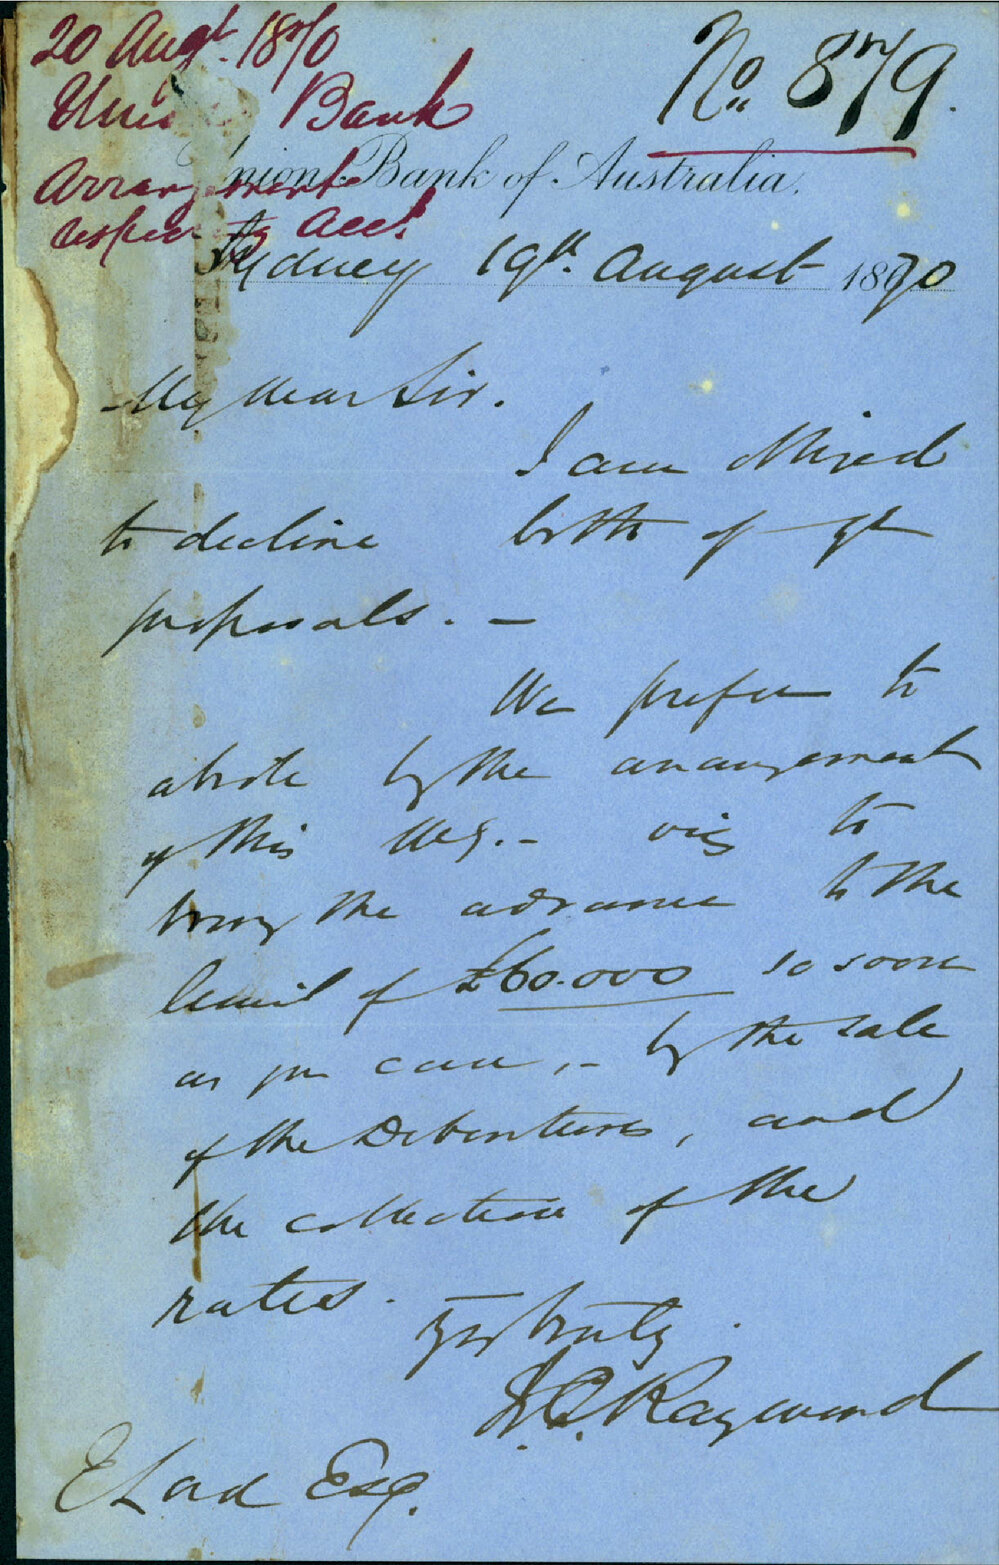 20 Augt. 1870
No. 879.
Union Bank
Union Bank of Australia.
Arrangement
respectg Acct.
Sydney 19th. August 1870
My dear Sir.
I am obliged
to decline both of yr
proposals. –
We prefer to
abide by the arrangement
of this – viz to
bring the advance to the
limit of £60.000 so soon
as you can, – by the sale
of the Debentures, and
the collection of the
rates.
Yrs truly
Raymond
E Lord Esq.